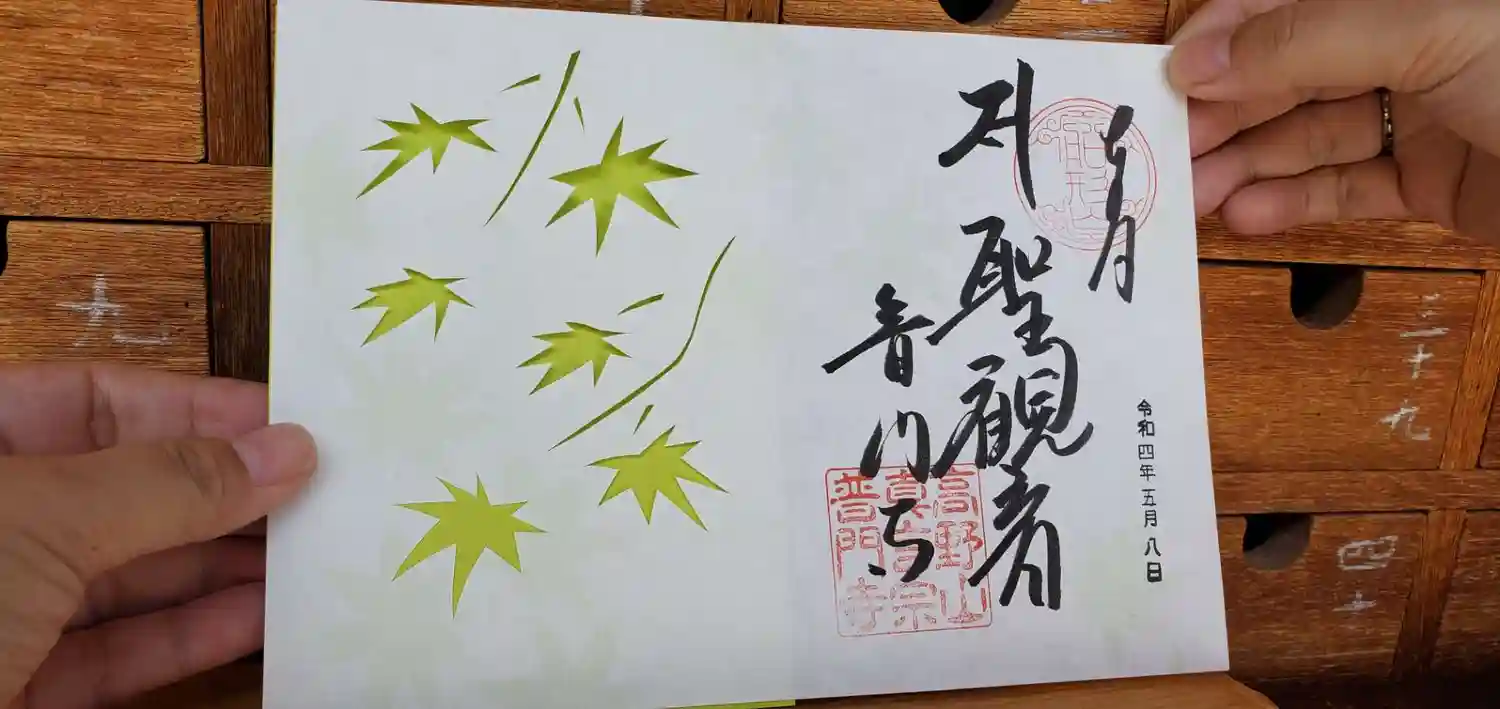 令和四年五月八日
聖観音
普門寺
高野山
真言宗
普門寺
三十九
四十
十九